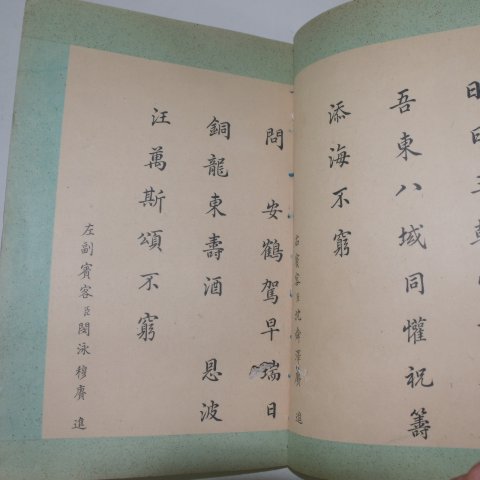 吾東八域同懽祝籌
添海不窮
右賓客臣沈
進
問 安鶴駕早瑞日
銅龍東壽酒 恩波
汪萬斯頌不窮
左副賓客臣閔泳穆賡 進